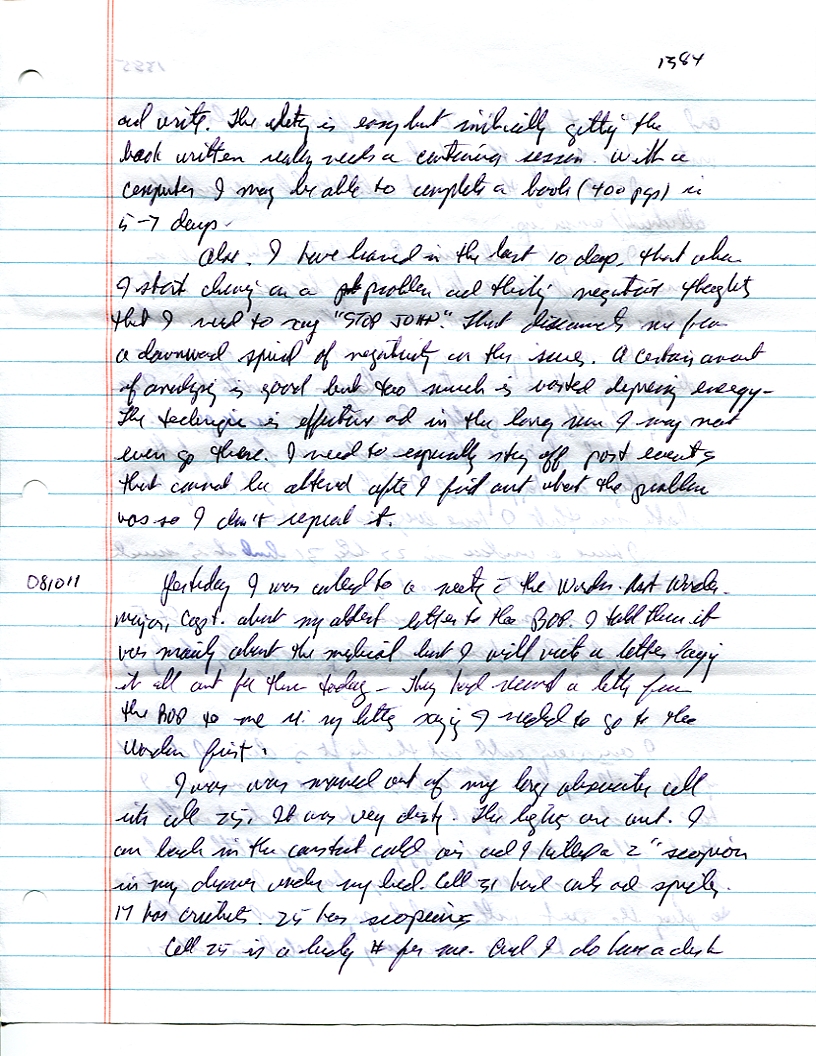 1384
and write. The is easy but initially getting the
book written really needs a continuing session. With a
computer I may be able to complete a book (400 pgs) in
5-7 days.
Also, I have learned in the last 10 days, that when
I start chewing on a problem and thinking negative thoughts
that I need to say "STOP JOHN". That disconnects me from
a downward spiral of negativity on the issues. A certain amount
of analyzing is good but too much is wasted depressing energy-
The technique is effective and in the long run I may not
even go there. I need to especially stay off past events
that cannot be altered after I find out what the problem
was so I don't repeat it.
081011 Yesterday I was called to a meeting c̄ the Warden. Asst Warden.
major, Capt. about my letter to the BOP. I told them it
was mainly about the medical but I will write a letter laying
it all out for them today - They had received a letter from
the BOP to me re: my letter saying I needed to go to the
Warden first.
I was was moved out of my long cell
into cell 25. It was very dirty. The lights are out. I
am back in the constant cold air and I killed a 2" scorpion
in my drawer under my bed. Cell 31 had ants and spiders.
17 has crickets. 25 has scorpions
Cell 25 is a lucky # for me. And I do have a desk